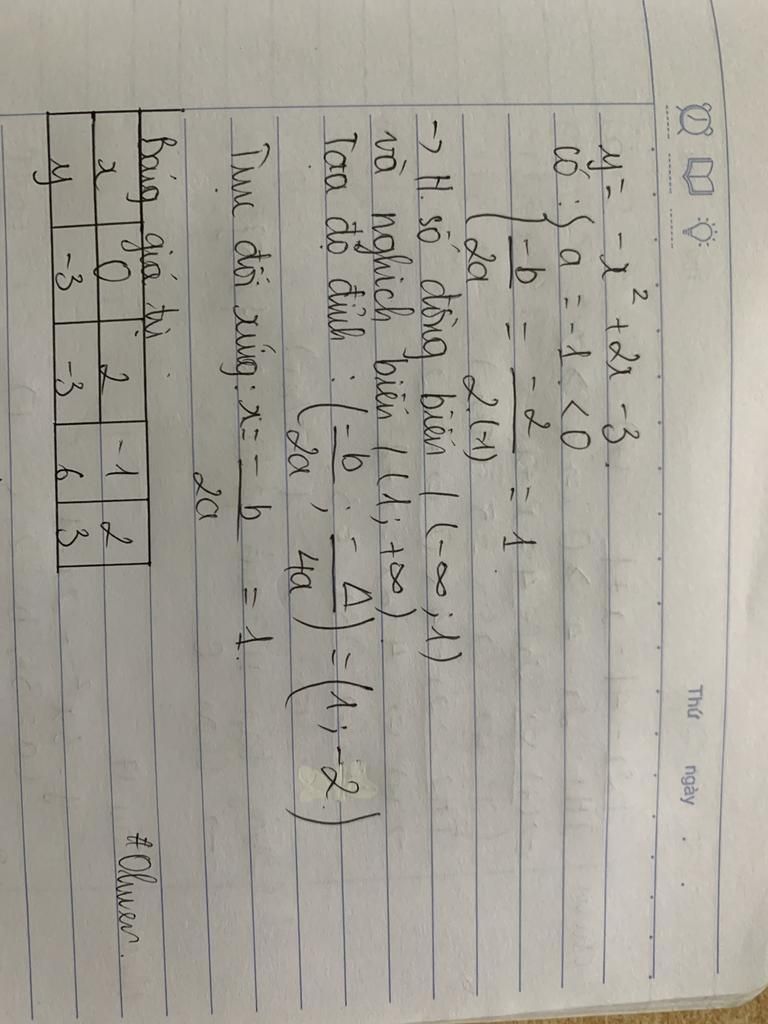 Thứ ngày . .
y = -x² + 2x - 3.
có : { a = -1 < 0
{ -b/2a = -2/2.(-1) = 1.
→ H. số đồng biến / (-∞ ; 1)
và nghịch biến / (1 ; +∞)
Tọa độ đỉnh : (-b/2a ; -Δ/4a) = (1 ; -2)
Trục đối xứng : x = -b/2a = 1.
Bảng giá trị.
x 0 2 -1 2
y -3 -3 6 3
#Oliver.